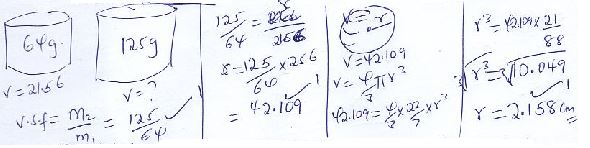 64g
125g
V = 21.56
V = ?
V.S.f = m₂/m₁ = 125/64
125/64 =
125/64 × 21.56
= 42.109
V = 42.109
V = 4/3 πr³
42.109 = 4/3 × 22/7 × r³
r³ = 42.109 × 21/88
∛r³ = ∛10.049
r = 2.158cm